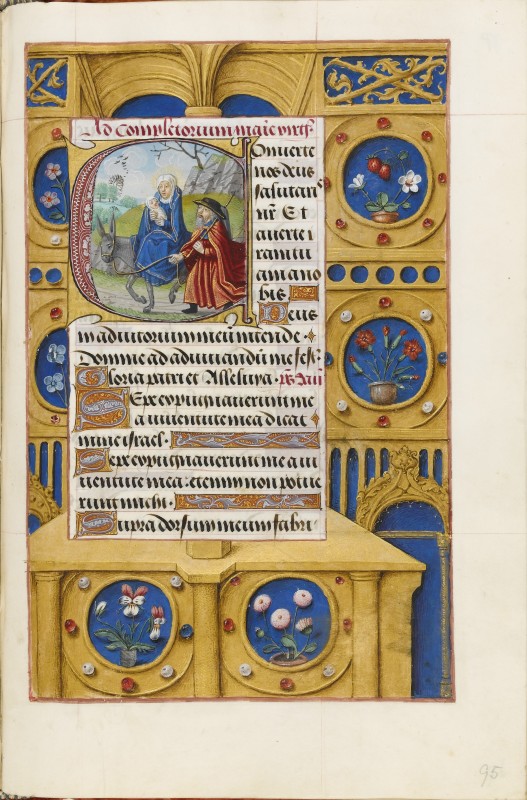 Ad Completorium marie virg̃
Conuerte
nos deus
salutaris
nr̃. Et
auerte i
ram tu
am a no
bis
Deus
in adiutorium meũ intende
Domine ad adiuuandũ me fes.
Gloria patri et Alleluya. ps̃ dauid
Sepe expugnauerunt me
a iuuentute mea dicat
nunc israel
Sepe expugnauerunt me a iu
uentute mea: etenim non potue
runt michi
Supra dorsum meum fabri
95